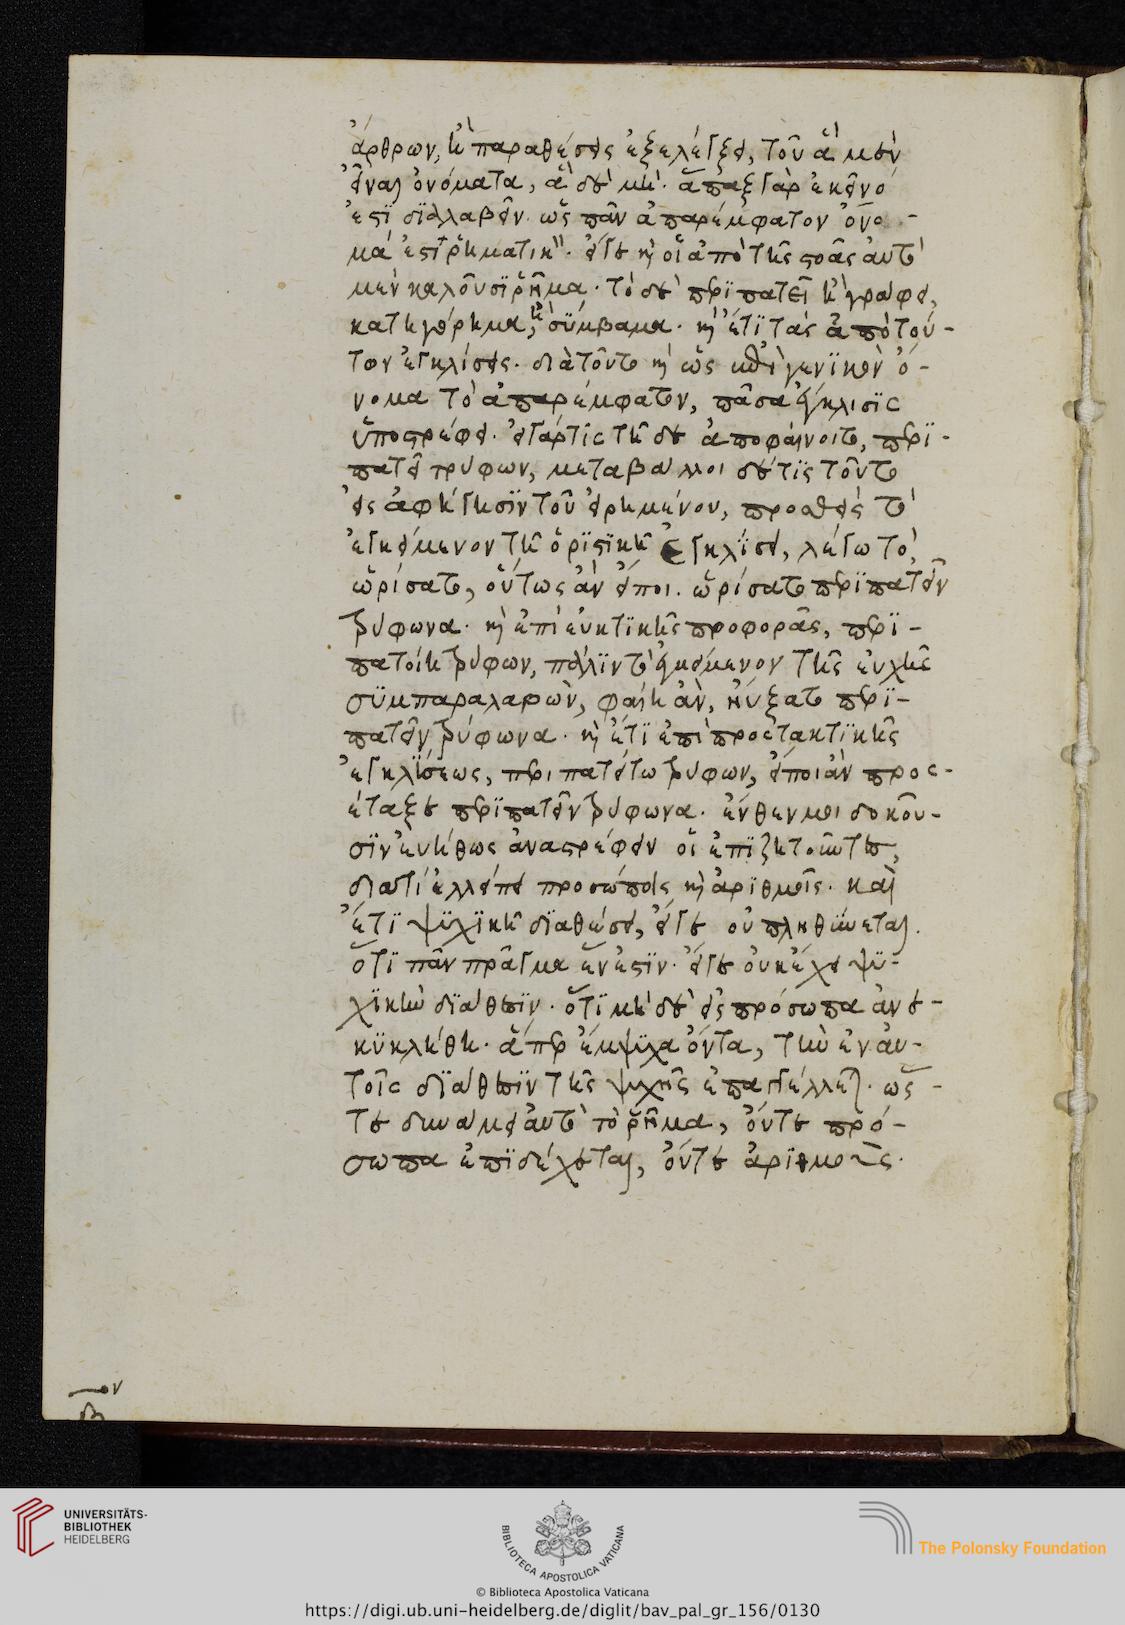 ἄρθρων, ἢ παραθέσεις ἐξελέγξει, τοῦ ἃ μὲν
εἶναι ὀνόματα, ἃ δὲ μή. ἅπαξ γὰρ ἐκεῖνο
ἐστὶ διαλαβεῖν. ὡς πᾶν ἀπαρέμφατον ὄνο-
μά ἐστι ῥηματικόν. εἴγε καὶ οἱ ἀπὸ τῆς στοᾶς αὐτὸ
μὲν καλοῦσι ῥῆμα. τὸ δὲ περιπατεῖ ἢ γράφει,
κατηγόρημα, ἢ σύμβαμα. καὶ ἔτι τὰς ἀπὸ τού-
των ἐγκλίσεις. διὰ τοῦτο καὶ ὡς καθὸ γενικὸν ὄ-
νομα τὸ ἀπαρέμφατον, πᾶσα ἔγκλισις
ὑποστρέφει. εἰ γάρ τις τῇδε ἀποφαίνοιτο, περι-
πατεῖ τρύφων, μεταβάλλοι δέ τις τοῦτο
εἰς ἀφήγησιν τοῦ εἰρημένου, προσθεὶς τὸ
ἐγκείμενον τῇ ὁριστικῇ ἐγκλίσει, λέγω τὸ,
ὡρίσατο, οὕτως ἂν εἴποι. ὡρίσατο περιπατεῖν
τρύφωνα. καὶ ἐπὶ εὐκτικῆς προφορᾶς, περι-
πατοίη τρύφων, πάλιν τὸ ἐγκείμενον τῆς εὐχῆς
συμπαραλαβὼν, φαίη ἂν, ηὔξατο περι-
πατεῖν τρύφωνα. καὶ ἔτι ἐπὶ προστακτικῆς
ἐγκλίσεως, περιπατείτω τρύφων, εἴποι ἂν προσ-
έταξε περιπατεῖν τρύφωνα. ἔνθεν μοι δοκοῦ-
σιν εὐήθως ἀναστρέφειν οἱ ἐπιζητοῦντες,
διατί ἐλλείπει προσώποις καὶ ἀριθμοῖς. καὶ
ἔτι ψυχικῇ διαθέσει, εἴγε οὐ πληθύνεται.
ὅτι πᾶν πρᾶγμα ἕν ἐστιν. εἴγε οὐκ ἔχει ψυ-
χικὴν διάθεσιν. ὅτι μὴ δὲ εἰς πρόσωπα ἀνε-
κυκλήθη. ἅπερ ἔμψυχα ὄντα, τὴν ἐν αὐ-
τοῖς διάθεσιν τῆς ψυχῆς ἐπαγγέλλεται. ὥσ-
τε δυνάμει αὐτὸ τὸ ῥῆμα, οὔτε πρό-
σωπα ἐπιδέχεται, οὔτε ἀριθμούς.
UNIVERSITÄTS-
BIBLIOTHEK
HEIDELBERG
BIBLIOTECA APOSTOLICA VATICANA
The Polonsky Foundation
© Biblioteca Apostolica Vaticana
https://digi.ub.uni-heidelberg.de/diglit/bav_pal_gr_156/0130